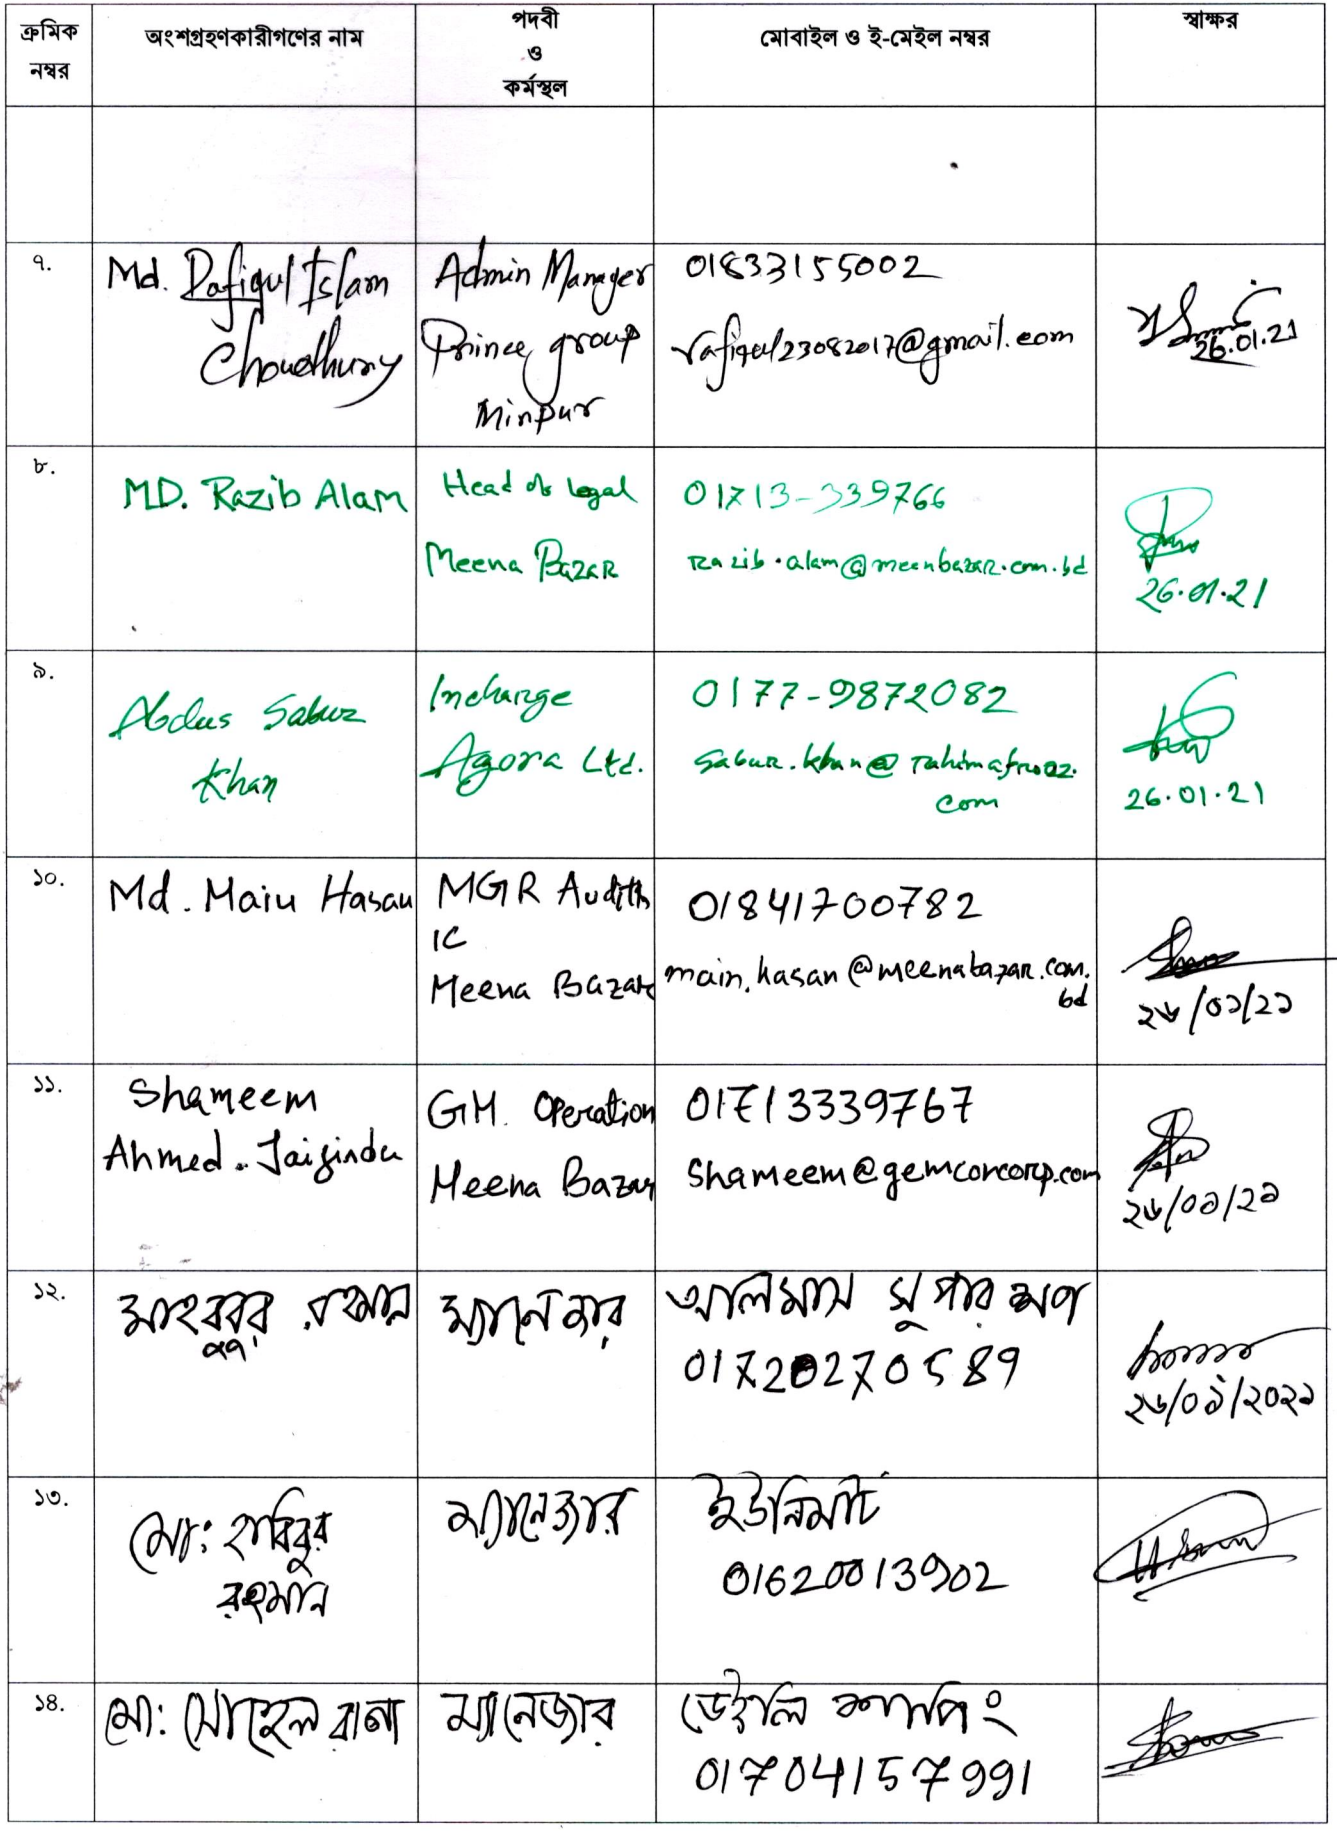 ক্রমিক নম্বর
অংশগ্রহণকারীগণের নাম
পদবী
ও
কর্মস্থল
মোবাইল ও ই-মেইল নম্বর
স্বাক্ষর
৭.
Md. Rafiqul Islam
Choudhury
Admin Manager
Prince group
Mirpur
01833155002
rafiqul23082017@gmail.com
26.01.21
৮.
MD. Razib Alam
Head of Legal
Meena Bazar
01713-339766
razib.alam@meenbazar.com.bd
26.01.21
৯.
Abdus Sabur
Khan
Incharge
Agora Ltd.
0177-9872082
sabur.khan@rahimafrooz.
com
26.01.21
১০.
Md. Main Hasan
MGR Audit
IC
Meena Bazar
01841700782
main.hasan@meenabazar.com.
bd
২৬/০১/২১
১১.
Shameem
Ahmed. Jaigirdar
GM. Operation
Meena Bazar
01713339767
Shameem@gemconcorp.com
২৬/০১/২১
১২.
মাহবুবুর রহমান
ম্যানেজার
আলমাস সুপার সপ
01720270589
২৬/০১/২০২১
১৩.
মো: হাবিবুর
রহমান
ম্যানেজার
ইউনিমার্ট
01620013902
১৪.
মো: সোহেল রানা
ম্যানেজার
ডেইলি শপিং
01704157991